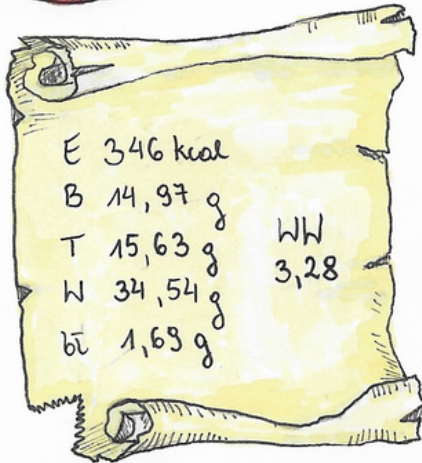 E 346 kcal
B 14,97 g
T 15,63 g
W 34,54 g
bł 1,69 g
WW
3,28